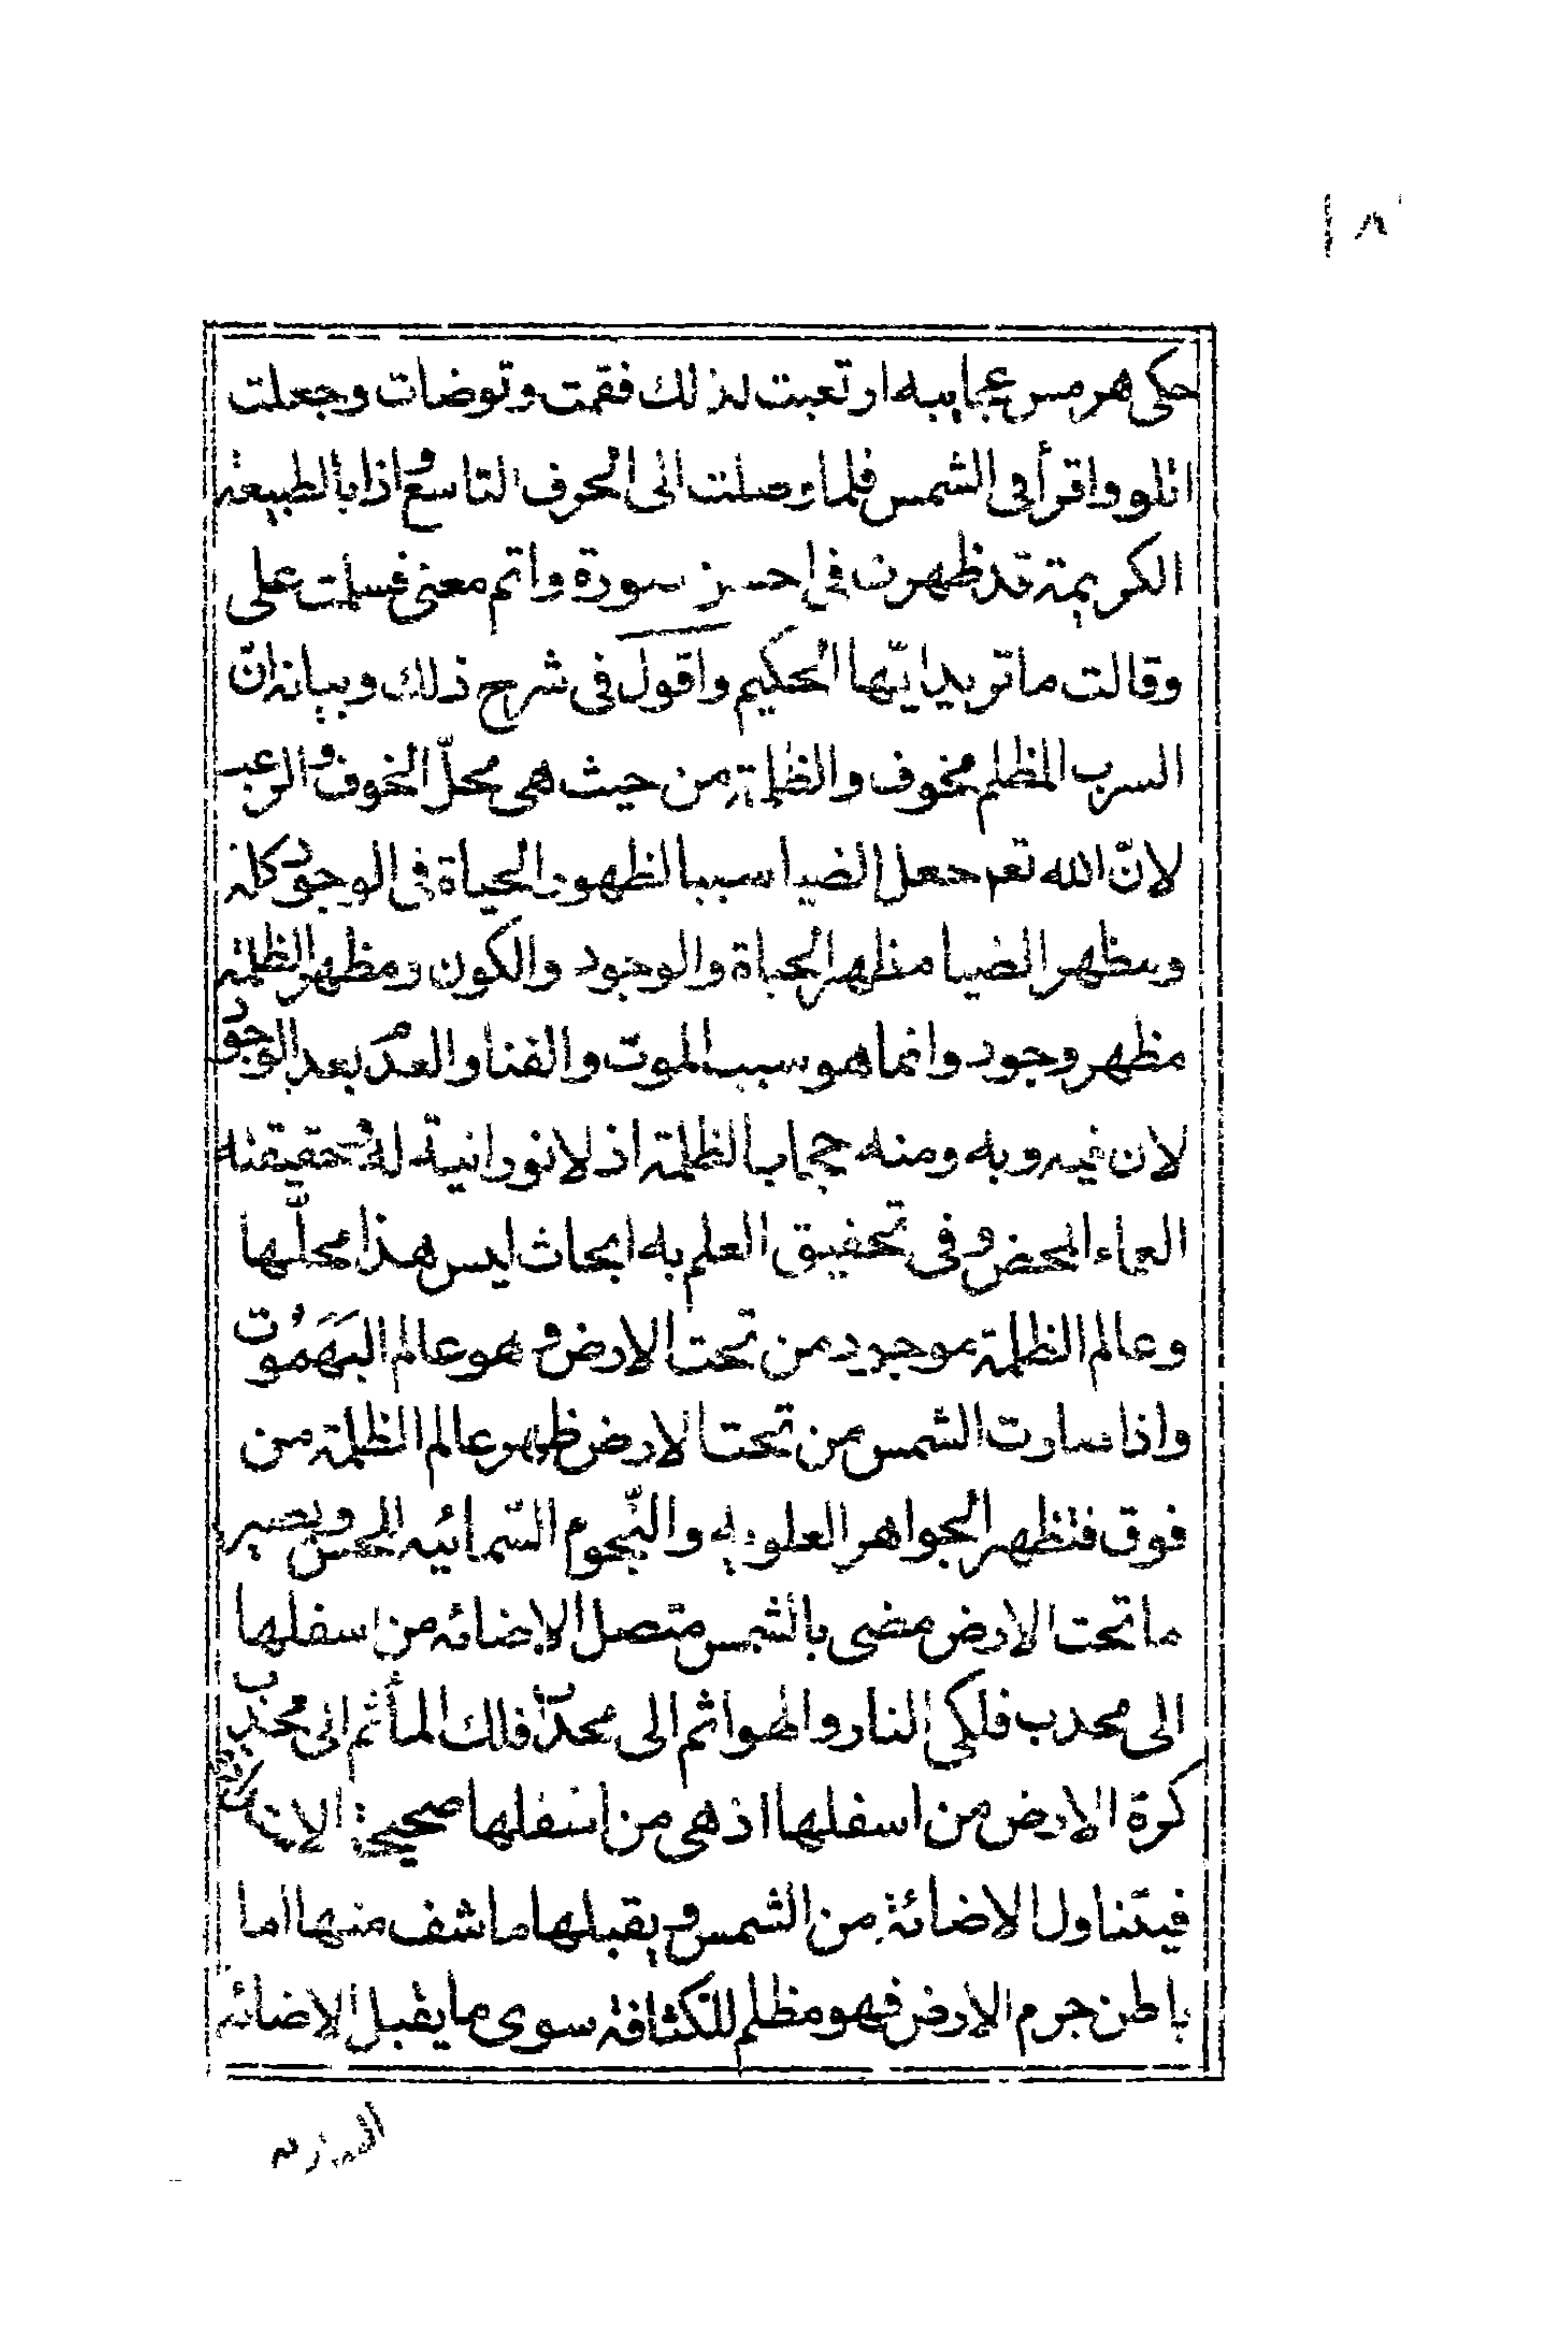 ٨
حكى هرمس عجايبه ارتعبت لذلك فقمت وتوضات وجعلت
اتلو واقرأ فى الشمس فلما وصلت الى الحرف التاسع واذا بالطبيعة
الكريمة قد ظهرت فى احسن سورة واتم معنى فسلمت على
وقالت ما تريد ايّها الحكيم واقول فى شرح ذلك وبيانه انّ
السرب المظلم مخوف والظلمة من حيث هى محلّ الخوف والرعب
لانّ الله تعم جعل الضيا سببا لظهور الحياة فى الوجود كله
ومظهر الضيا مظهر الحياة والوجود والكون ومظهر الظلمة
مظهر وجود وانما هو سبب الموت والفنا والعدم بعد الوجود
لان فيه وبه ومنه حجاب الظلمة اذ لا نورانية له وحقيقته
العماء المحض وفى تحقيق العلم به ابحاث ليس هذا محلّها
وعالم الظلمة موجود من تحت الارض وهو عالم البَهَمُوت
واذا سارت الشمس من تحت الارض ظهر عالم الظلمة من
فوق فتظهر الجواهر العلويه والنّجوم السّمائيه للحس ويصير
ما تحت الارض مضى بالشمس متصل الاضائه من اسفلها
الى محدب فلكى النار والهوا ثم الى محدّب فلك المأ ثم الى محدب
كرة الارض من اسفلها اذ هى من اسفلها صحيحة
فيتناول الاضائة من الشمس ويقبلها ما شف منها اما
باطن جرم الارض فهو مظلم للكثافة سوى ما يقبل الاضائة